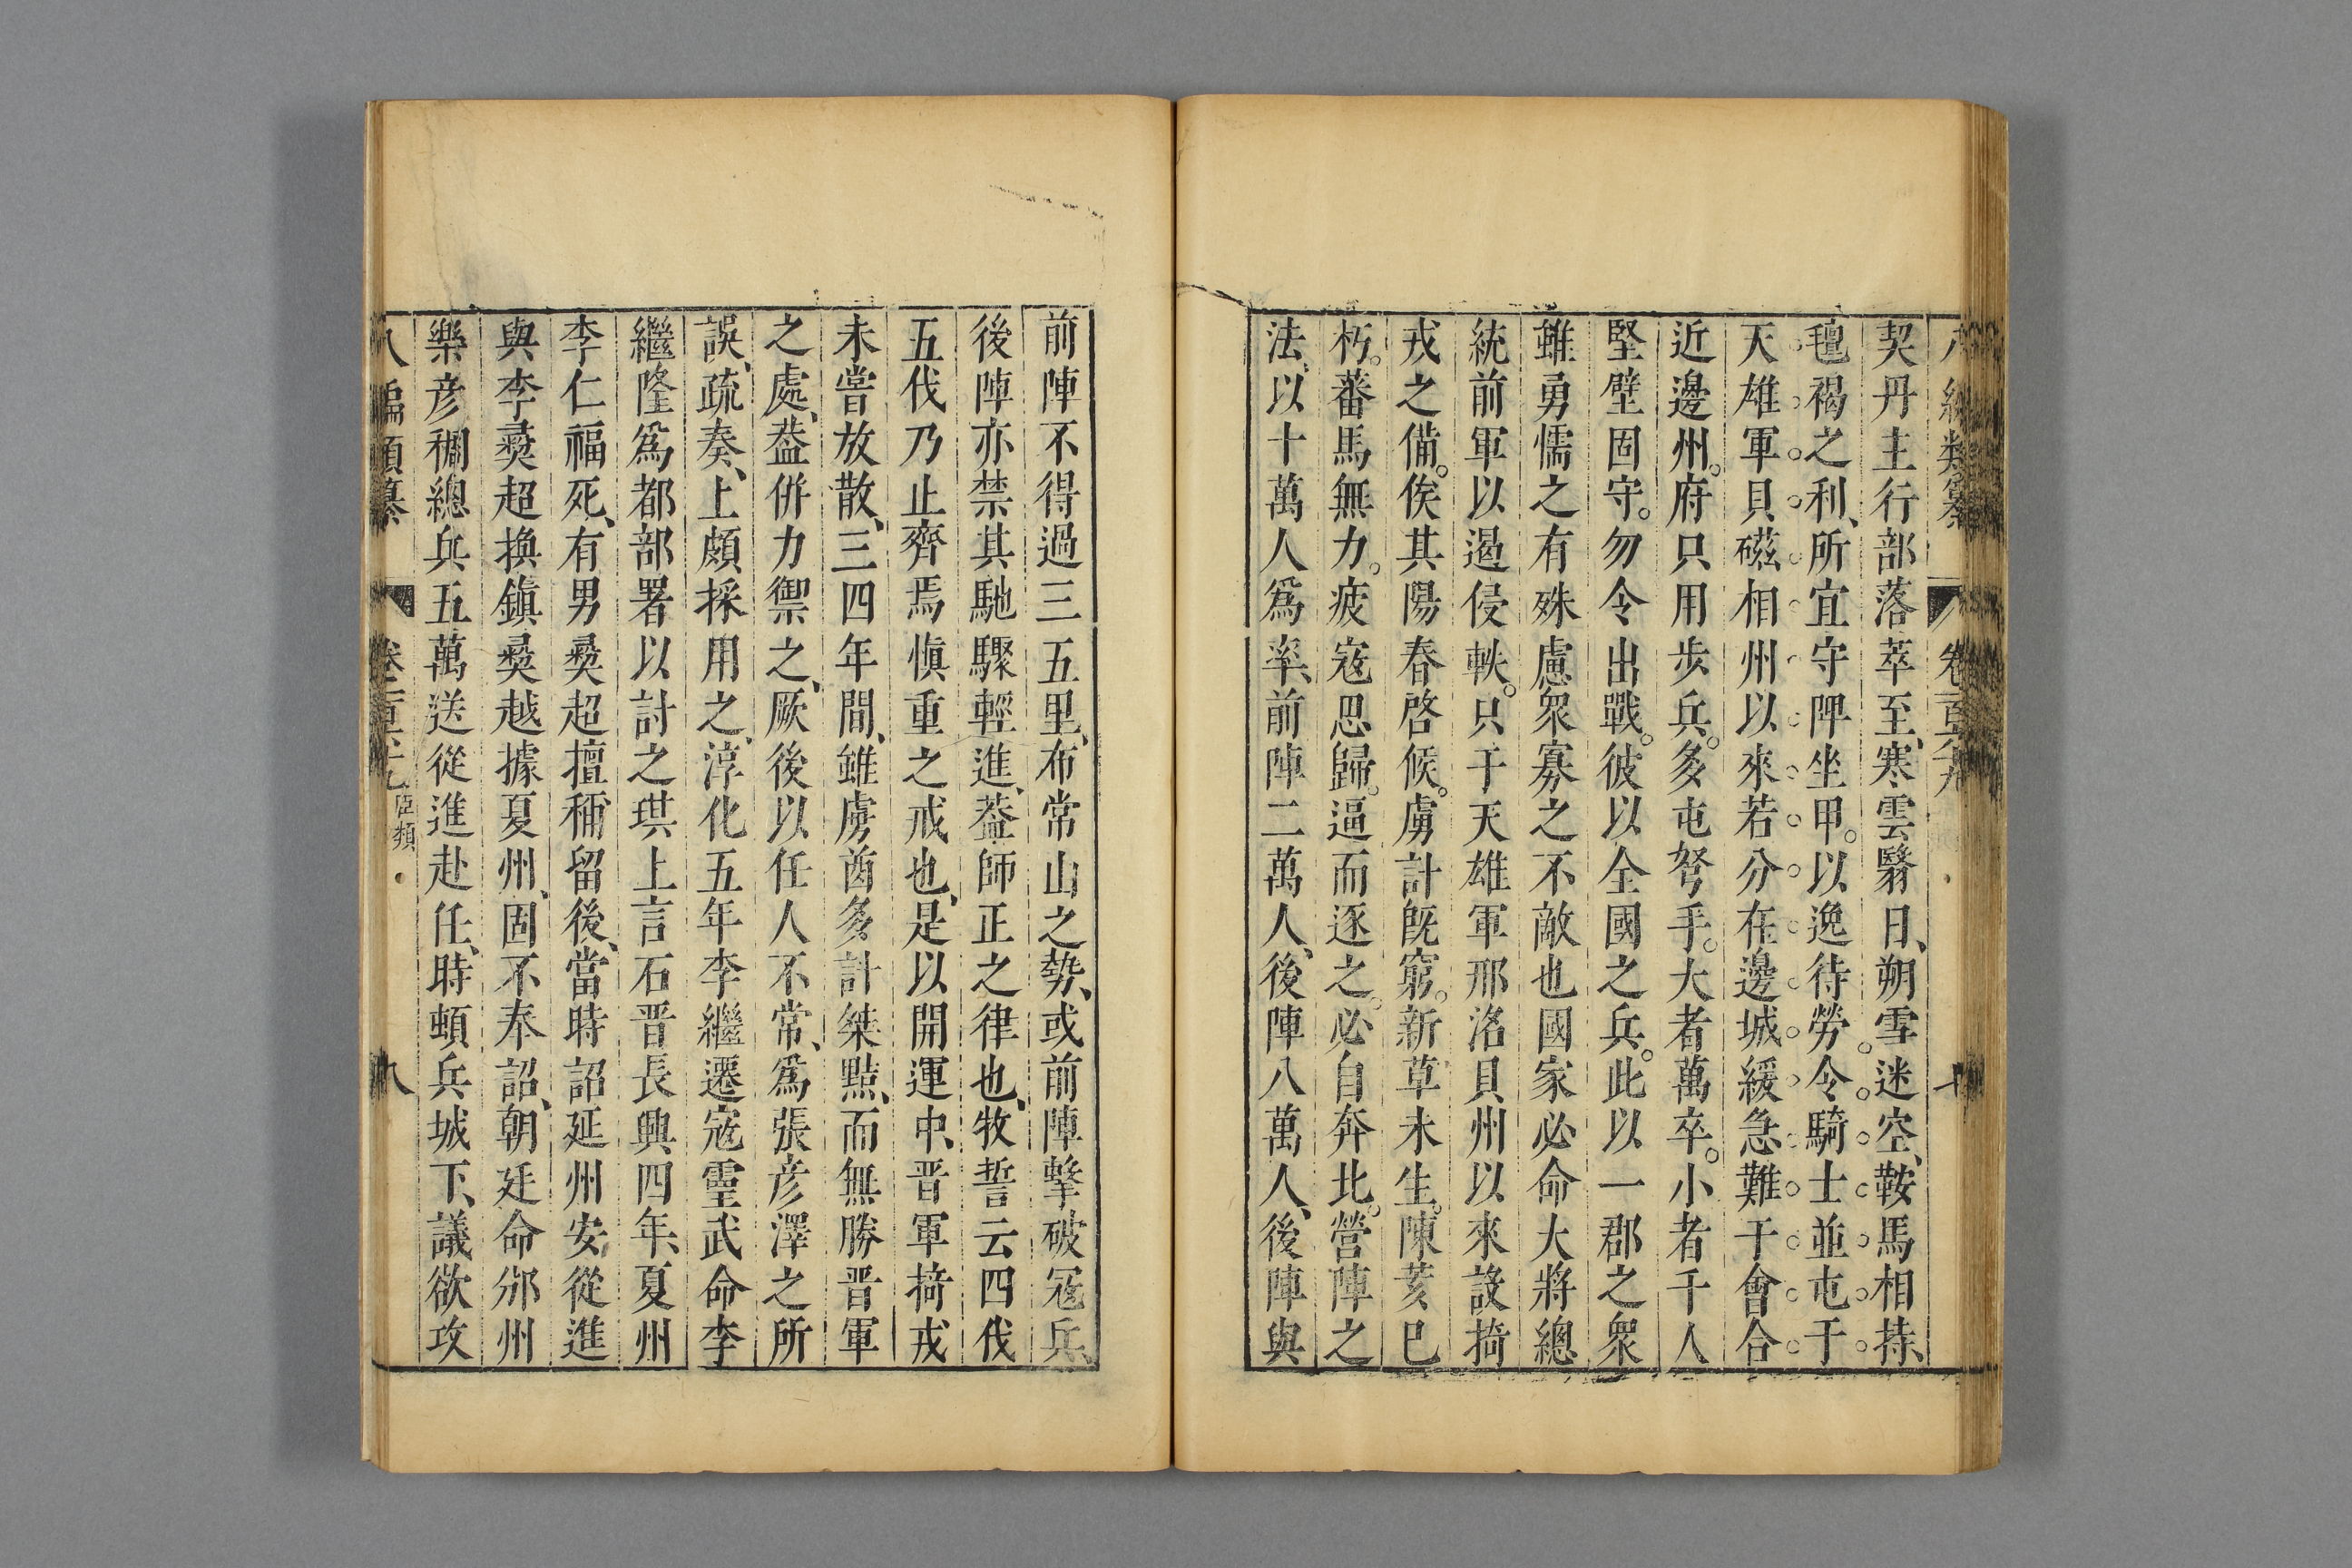 契丹主行部落萃至、寒雲翳日、朔雪迷空、鞍馬相持、
氊褐之利、所宜守陴坐甲。以逸待勞。令騎士並屯于
天雄軍貝磁相州以來若分在邊城緩急難于會合
近邊州。府只用步兵。多屯弩手。大者萬卒。小者千人
堅壁固守。勿令出戰。彼以全國之兵。此以一郡之衆
雖勇懦之有殊慮衆寡之不敵也國家必命大將總
統前軍以遏侵軼。只于天雄軍邢洺貝州以來設掎
戎之備。俟其陽春啓候。虜計旣窮。新草未生。陳荄已
朽。蕃馬無力。疲寇思歸。逼而逐之。必自奔北。營陣之
法、以十萬人爲率、前陣二萬人、後陣八萬人、後陣與
前陣不得過三五里、布常山之勢、或前陣擊破冦兵、
後陣亦禁其馳驟輕進、葢師正之律也、牧誓云四伐
五伐乃止齊焉愼重之戒也、是以開運中、晋軍掎戎
未嘗放散、三四年間、雖虜酋多計桀黠、而無勝晋軍
之處、葢併力禦之、厥後以任人不常、爲張彥澤之所
誤、疏奏、上頗採用之、淳化五年李繼遷寇靈武命李
繼隆爲都部署以討之琪上言石晋長興四年、夏州
李仁福死、有男彛超擅稱留後、當時詔延州安從進
與李彛超換鎭彛越據夏州、固不奉詔、朝廷命邠州
樂彥稠總兵五萬送從進赴任、時頓兵城下、議欲攻
八編類纂 卷二百六十九 臣類 八